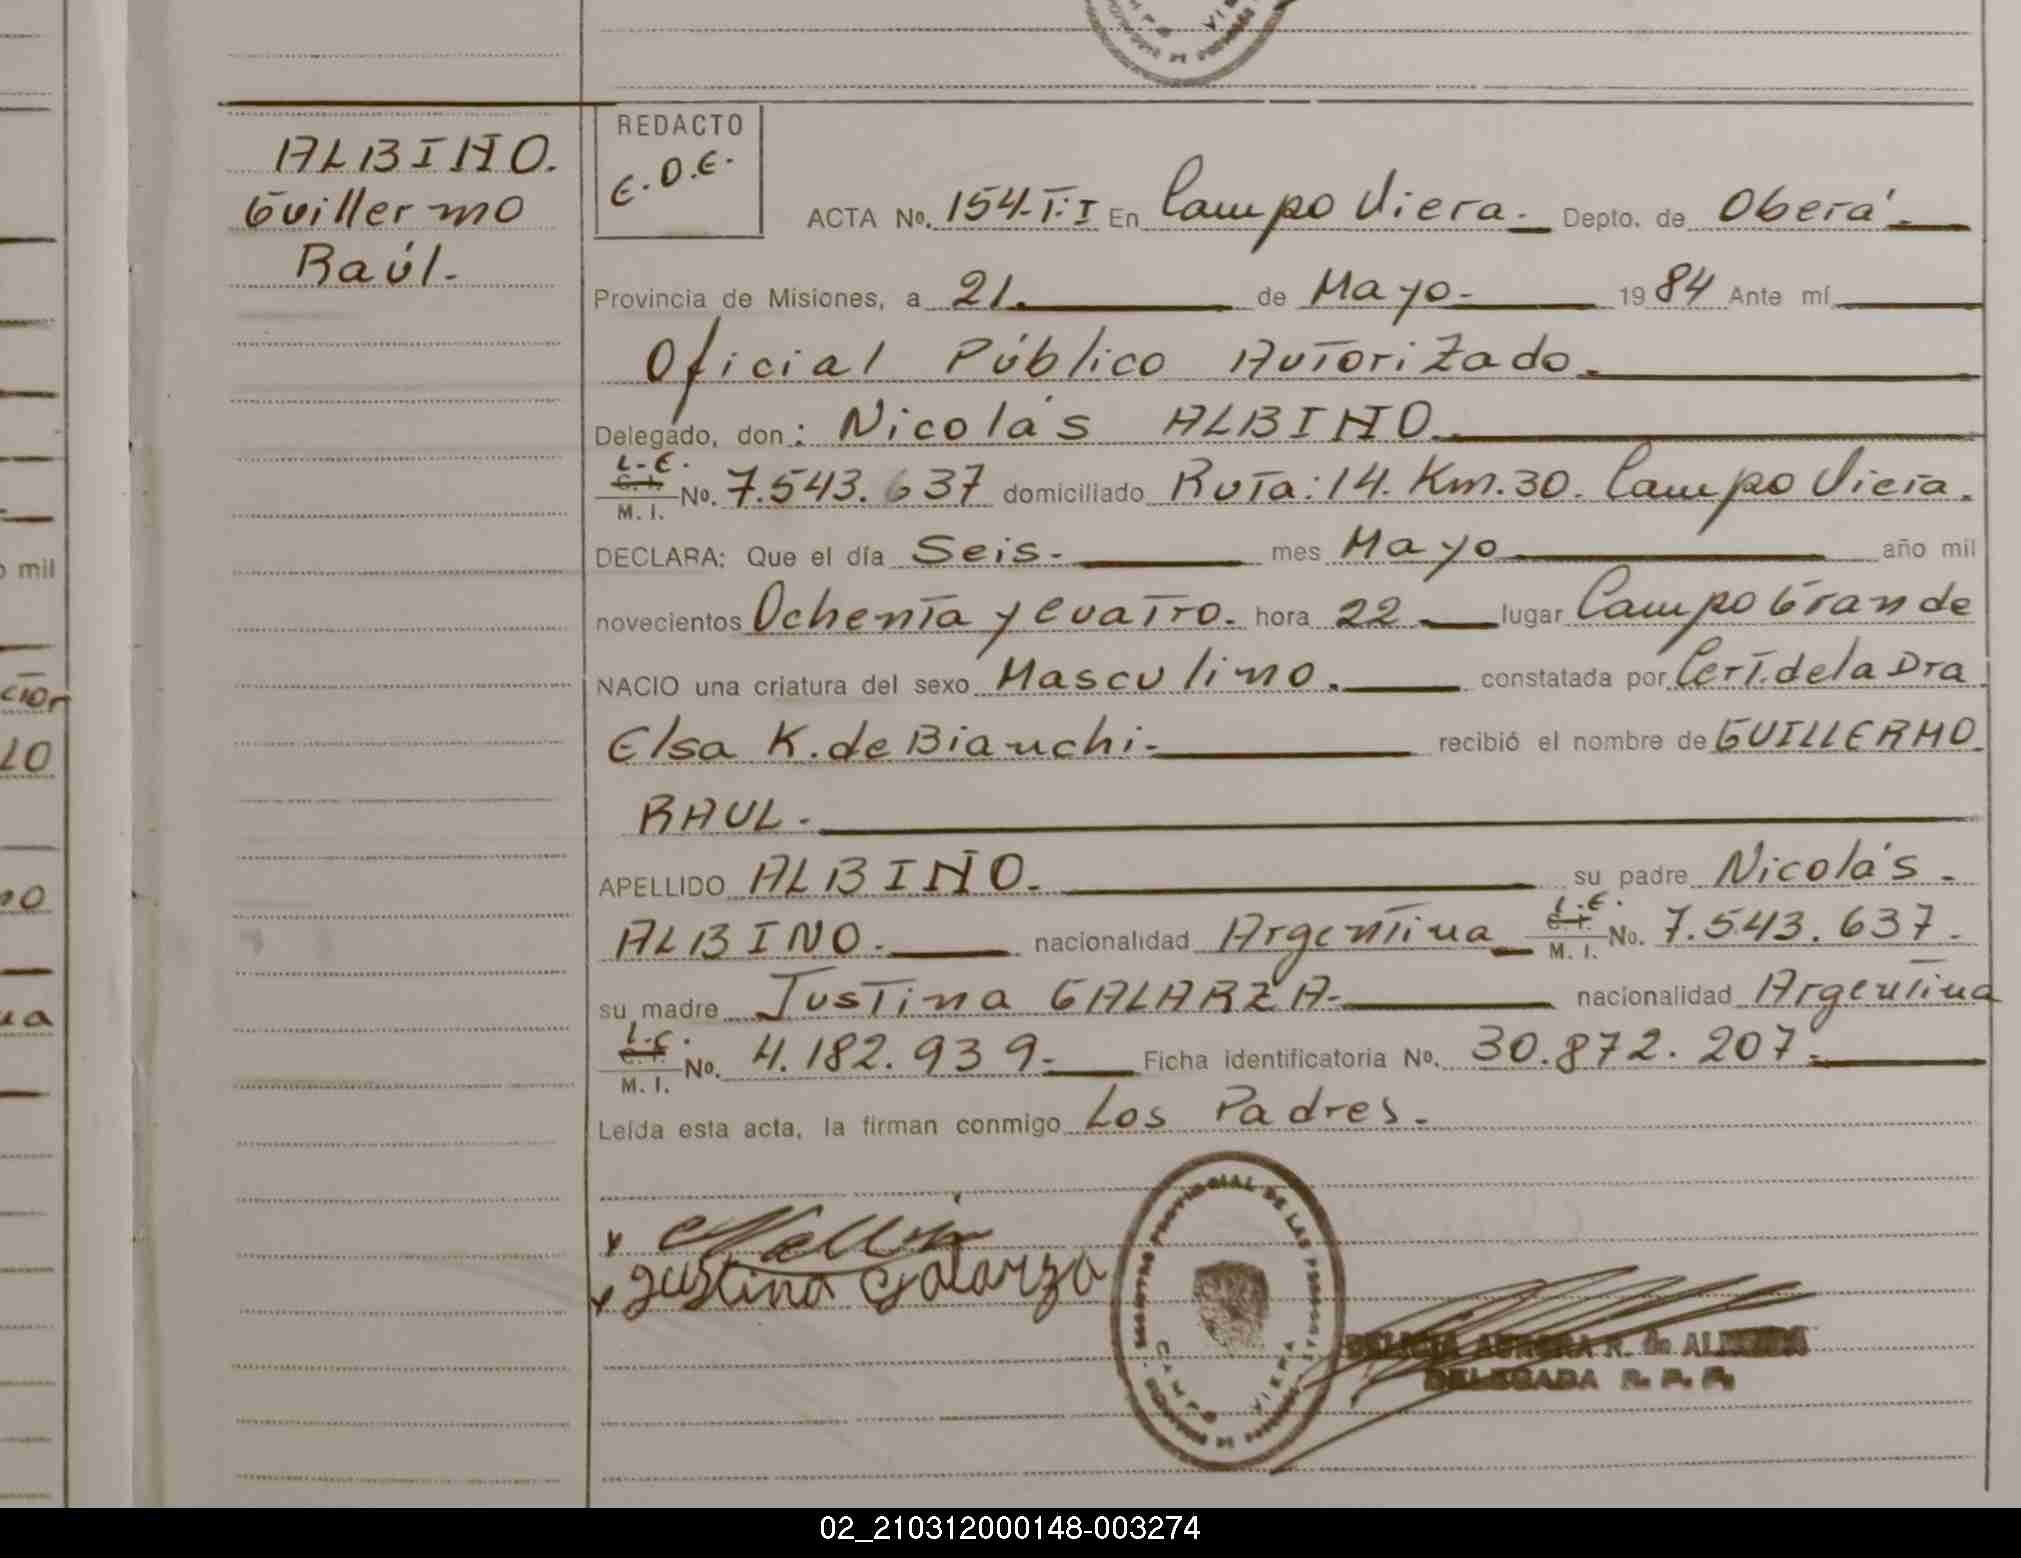 ALBINO.
Guillermo
Raúl.
REDACTO
E.D.E.
ACTA No. 154-T:I En Campo Viera. Depto. de Oberá.
Provincia de Misiones, a 21. de Mayo. 1984 Ante mí
Oficial Público Autorizado.
Delegado, don: Nicolás ALBINO.
L.E.
C. I.
M. I. No. 7.543.637 domiciliado Ruta: 14. Km. 30. Campo Viera.
DECLARA: Que el día Seis. mes Mayo año mil
novecientos Ochenta y Cuatro. hora 22 lugar Campo Grande
NACIO una criatura del sexo Masculino. constatada por Cert. de la Dra
Elsa K. de Bianchi. recibió el nombre de GUILLERMO
RAUL.
APELLIDO ALBINO. su padre Nicolás.
ALBINO. nacionalidad Argentina L.E. C. I. M. I. No. 7.543.637.
su madre Justina GALARZA. nacionalidad Argentina
L.C.
C. I.
M. I. No. 4.182.939. Ficha identificatoria No. 30.872.207.
Leída esta acta, la firman conmigo Los Padres.
Justina Galarza
REGISTRO PROVINCIAL DE LAS PERSONAS
CAMPO VIERA
DELICIA AURORA R. de
DELEGADA R. P. P.
o mil
cior
LO
no
na
02_210312000148-003274